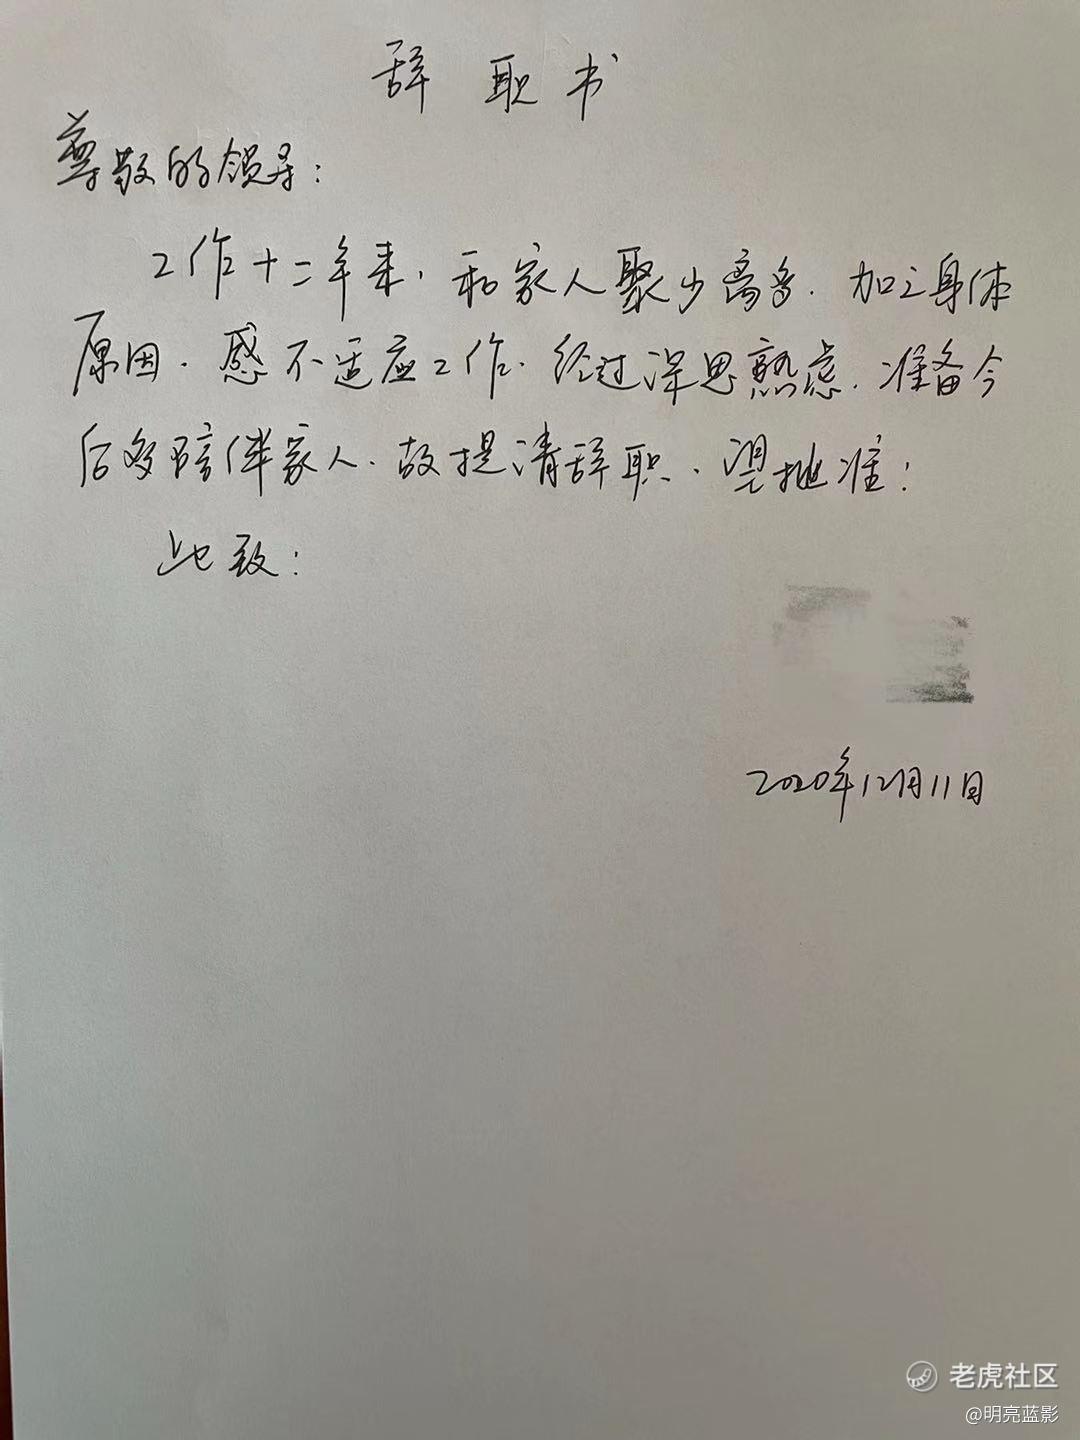 辞职书
尊敬的领导：
工作十二年来，和家人聚少离多，加之身体
原因，感不适应工作，经过深思熟虑，准备今
后多陪伴家人，故提请辞职，望批准！
此致：
2020年12月11日
老虎社区
@明亮蓝影